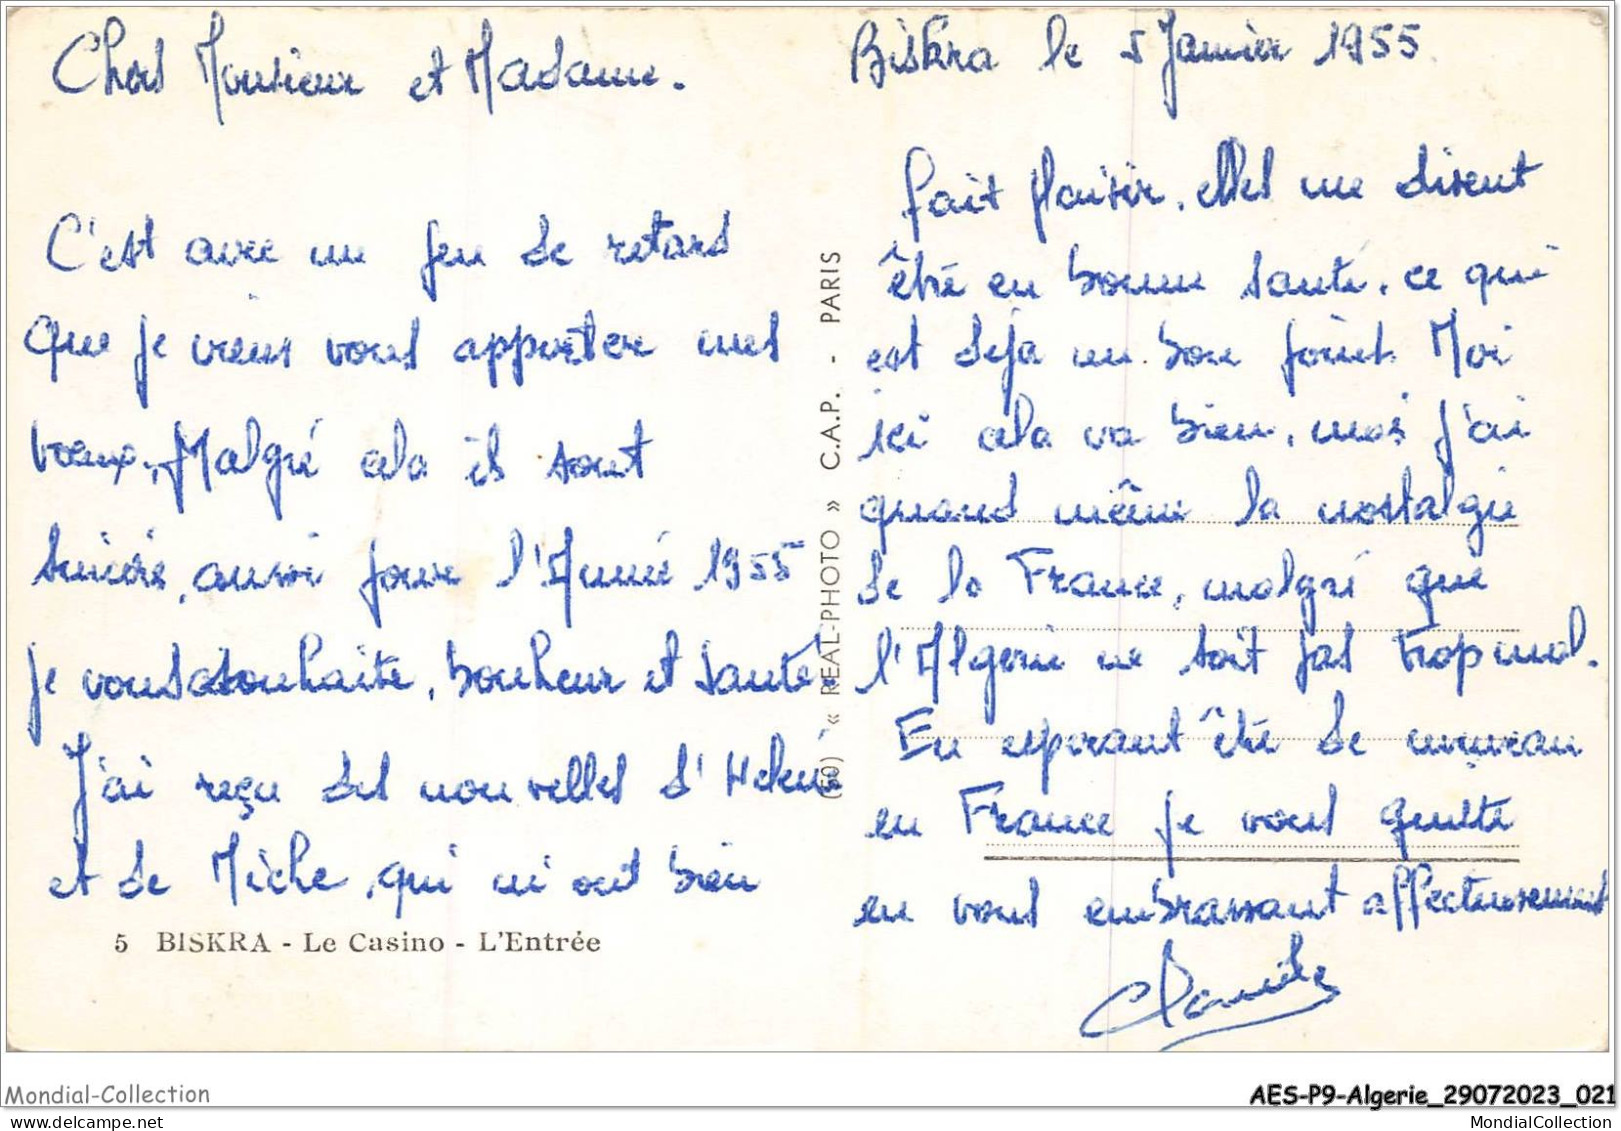 Chers Monsieur et Madame.
C'est avec un peu de retard
que je viens vous apporter mes
voeux, Malgré cela ils sont
sincère, aussi pour l'Année 1955
je vous souhaite, bonheur et santé.
J'ai reçu des nouvelles d'Helene
et de Miche, qui m'ont bien
5 BISKRA - Le Casino - L'Entrée
(60) « REAL-PHOTO » C.A.P. - PARIS
Biskra le 5 Janvier 1955.
fait plaisir, elles me disent
être en bonne santé, ce qui
est déja un bon point. Moi
ici cela va bien, mais j'ai
quand même la nostalgie
de la France, malgré que
l'Algerie ne soit pas trop mal.
En esperant être de nouveau
en France je vous quitte
en vous embrassant affectueusement
Mondial-Collection
AES-P9-Algerie_29072023_021
MondialCollection